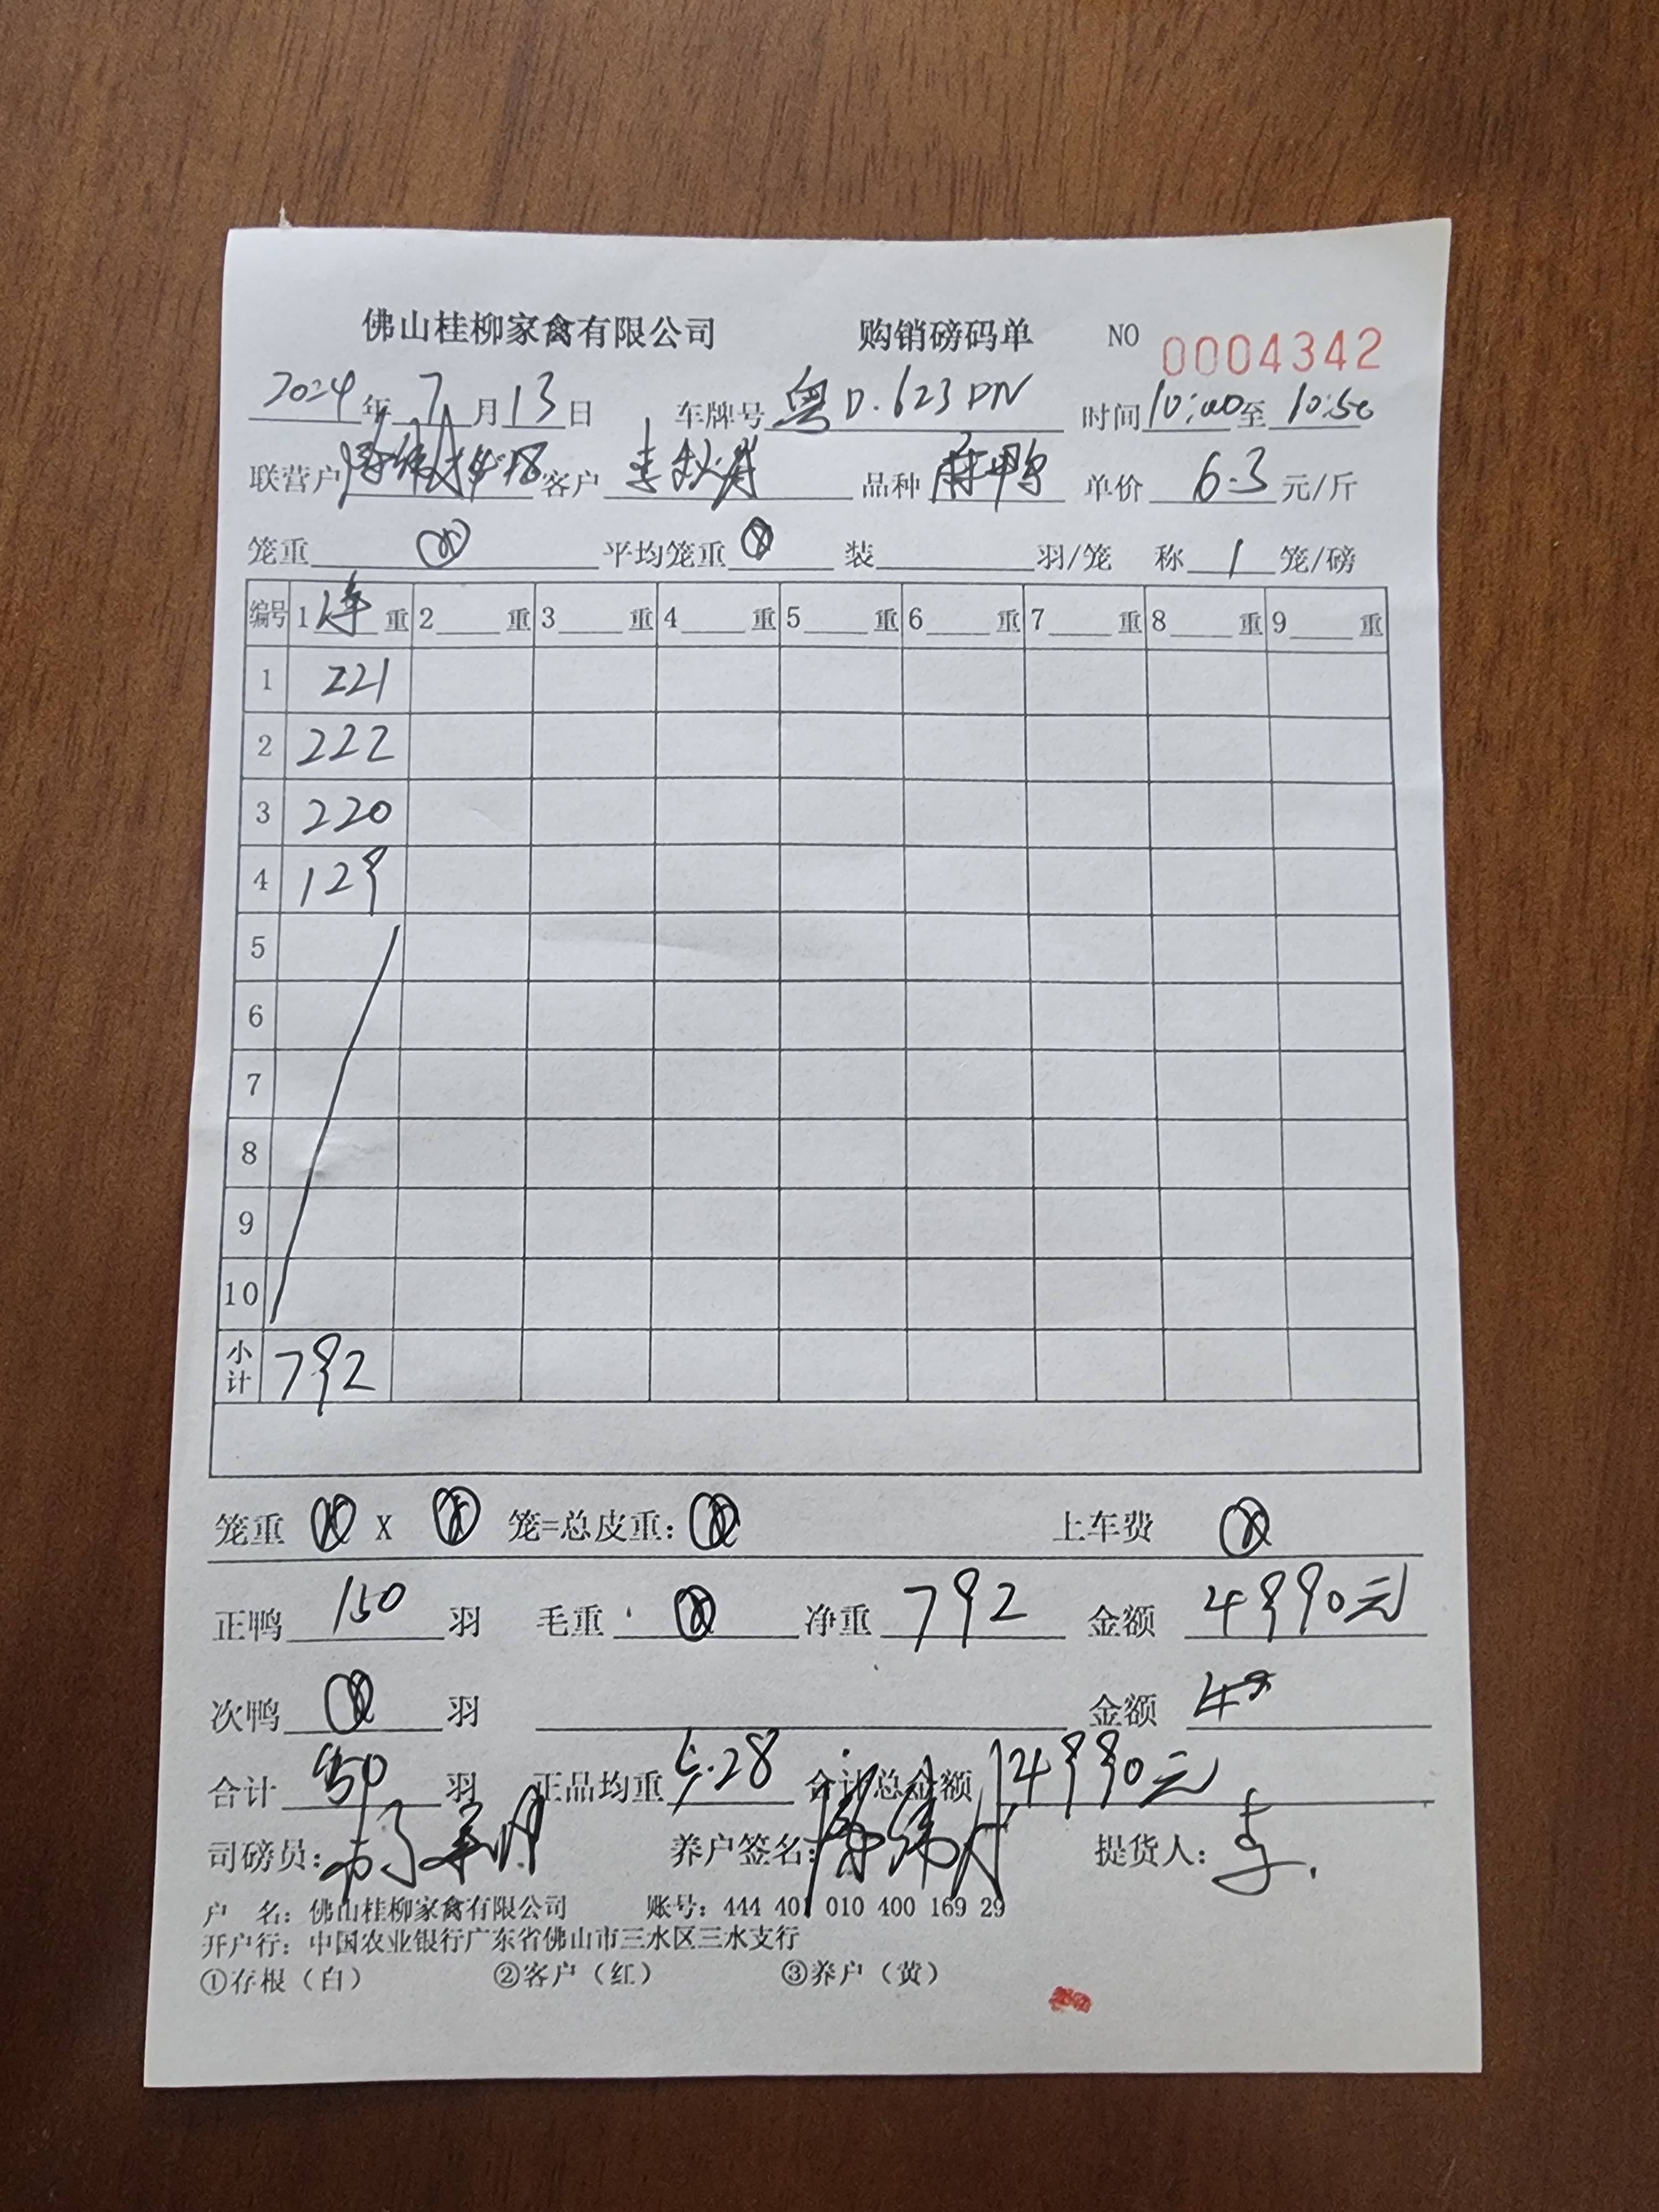 佛山桂柳家禽有限公司 购销磅码单 NO 0004342
2024年7月13日 车牌号 粤D.623PN 时间10:00至10:50
联营户 客户 李 品种 麻鸭 单价 6.3 元/斤
笼重 平均笼重 装 羽/笼 称 1 笼/磅
编号 1 净 重 2 重 3 重 4 重 5 重 6 重 7 重 8 重 9 重
1 221
2 222
3 220
4 129
5
6
7
8
9
10
小计 792
笼重 X 笼=总皮重: 上车费
正鸭 150 羽 毛重 净重 792 金额 4990元
次鸭 羽 金额
合计 150 羽 正品均重 5.28 合计总金额 4990元
司磅员: 养户签名: 提货人: 李
户 名: 佛山桂柳家禽有限公司 账号: 444 401 010 400 169 29
开户行: 中国农业银行广东省佛山市三水区三水支行
①存根（白） ②客户（红） ③养户（黄）